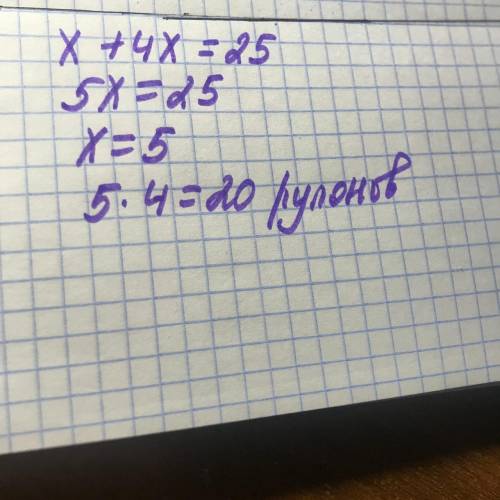 x + 4x = 25
5x = 25
x = 5
5 · 4 = 20 рулонов